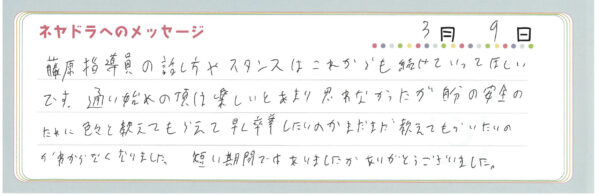 ネヤドラへのメッセージ
3月 9日
藤原指導員の話し方やスタンスはこれからも続けていってほしい
です。通い始めの頃は楽しいとあまり思わなかったが自分の安全の
ために色々と教えてもらえて早く卒業したいのかまだまだ教えてもらいたいの
か分からなくなりました。 短い期間ではありましたがありがとうございました。